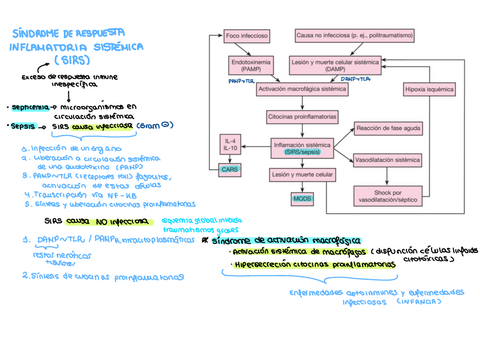 SÍNDROME DE RESPUESTA
INFLAMATORIA SISTÉMICA
(SIRS)
Exceso de respuesta inmune
inespecífica
• Septicemia → microorganismos en
circulación sistémica
• Sepsis → SIRS causa infecciosa (Gram ⊖)
1. Infección de un órgano
2. Liberación a circulación sistémica
de una endotoxina (PAMP)
3. PAMP∿TLR (receptores toll) fagocitos,
activación de estas células
4. Transcripción vía NF-KB
5. Síntesis y liberación citocinas proinflamatorias
SIRS causa NO infecciosa
isquemia global intensa
traumatismos graves
1. DAMP∿TLR / PAMPR intracitoplasmáticos
restos necróticos
2. Síntesis de citocinas proinflamatorias
Foco infeccioso
Causa no infecciosa (p. ej., politraumatismo)
Endotoxinemia
(PAMP)
Lesión y muerte celular sistémica
(DAMP)
PAMP∿TLR
DAMP∿TLR
Activación macrofágica sistémica
Hipoxia isquémica
Citocinas proinflamatorias
Reacción de fase aguda
IL-4
IL-10
Inflamación sistémica
(SIRS/sepsis)
CARS
Vasodilatación sistémica
Lesión y muerte celular
MODS
Shock por
vasodilatación/séptico
* síndrome de activación macrofágica
• Activación sistémica de macrófagos (disfunción células linfoides
citotóxicas)
• Hipersecreción citocinas proinflamatorias
Enfermedades autoinmunes y enfermedades
infecciosas (INFANCIA)